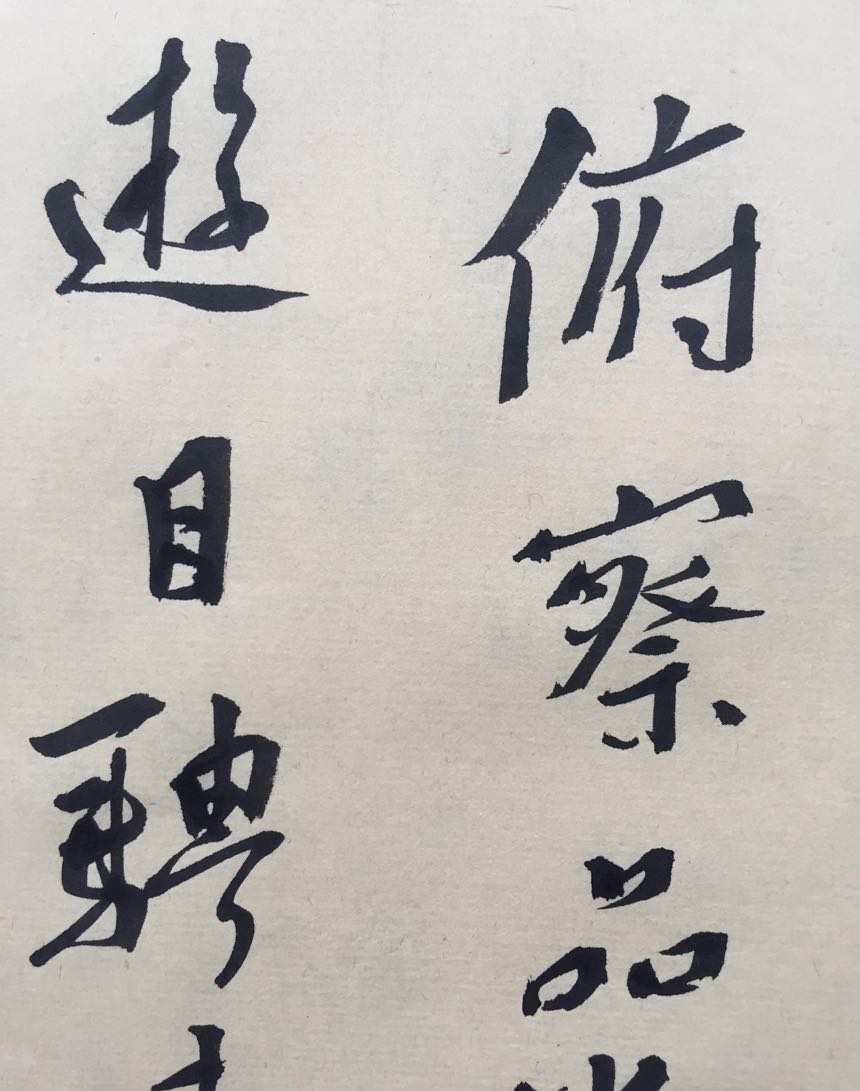 俯察品
遊目騁